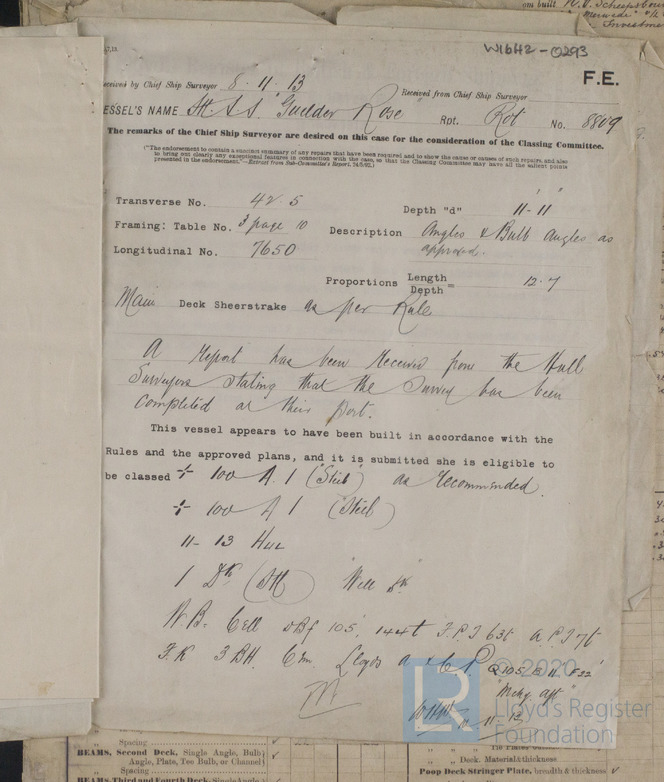 om built W. V. Scheepsbouw
W1642-0293
F.E.
eceived by Chief Ship Surveyor 8.11.13 Received from Chief Ship Surveyor
ESSEL'S NAME St. S.S. "Guelder Rose" Rpt. Rot No. 8809
The remarks of the Chief Ship Surveyor are desired on this case for the consideration of the Classing Committee.
("The endorsement to contain a succinct summary of any repairs that have been required and to show the cause or causes of such repairs, and also
to bring out clearly any exceptional features in connection with the case, so that the Classing Committee may have all the salient points
presented in the endorsement."—Extract from Sub-Committee's Report, 24/5/92.)
Transverse No. 42.5 Depth "d" 11-11
Framing: Table No. 3 page 10 Description Angles & Bulb Angles as
approved.
Longitudinal No. 7650
Proportions Length
Depth = 12.7
Main Deck Sheerstrake as per Rule
A Report has been received from the Hull
Surveyors stating that the survey has been
completed at their Port.
This vessel appears to have been built in accordance with the
Rules and the approved plans, and it is submitted she is eligible to
be classed + 100 A. 1 (Steel) as recommended.
+ 100 A 1 (Steel)
11-13 Hul
1 Dk (Stl) "Well Dk"
W B= Cell D Bf 105' 144t F.P.T 63t A.P.T 7t
F.K 3 BH. Cem. Lloyds A & C P Q 105' B 11' F 22'
"Mchy aft"
11-13
© 2020
LR
Lloyd's Register
Foundation
" Spacing
BEAMS, Second Deck, Single Angle, Bulb
Angle, Plate, Tee Bulb, or Channel
" Spacing
BEAMS, Third and Fourth Deck, Single Angle
" " Tie Plates
" Deck. Material & thickness
Poop Deck Stringer Plate, breadth & thickness